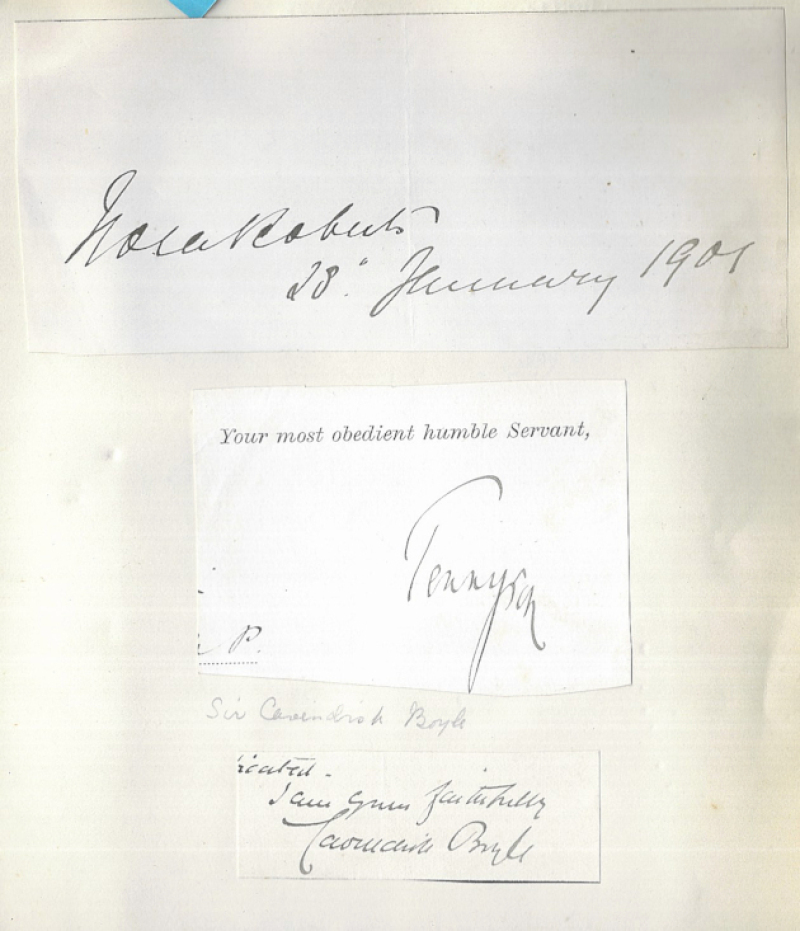 Nora Roberts
28" January 1901
Your most obedient humble Servant,
Tennyson
P.
Sir Cavendish Boyle
I am yours faithfully
Cavendish Boyle